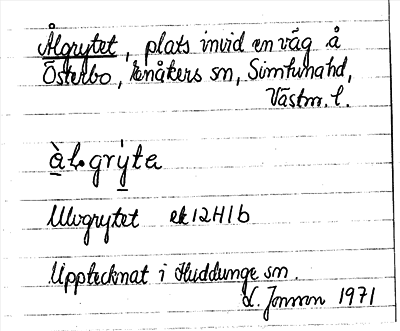 Ålgrytet, plats invid en väg å
Österbo, Enåkers sn, Simtuna hd,
Västm. l.
àl.grỳta
Ulvgrytet ek 12H1b
Upptecknat i Huddunge sn.
L. Jonson 1971